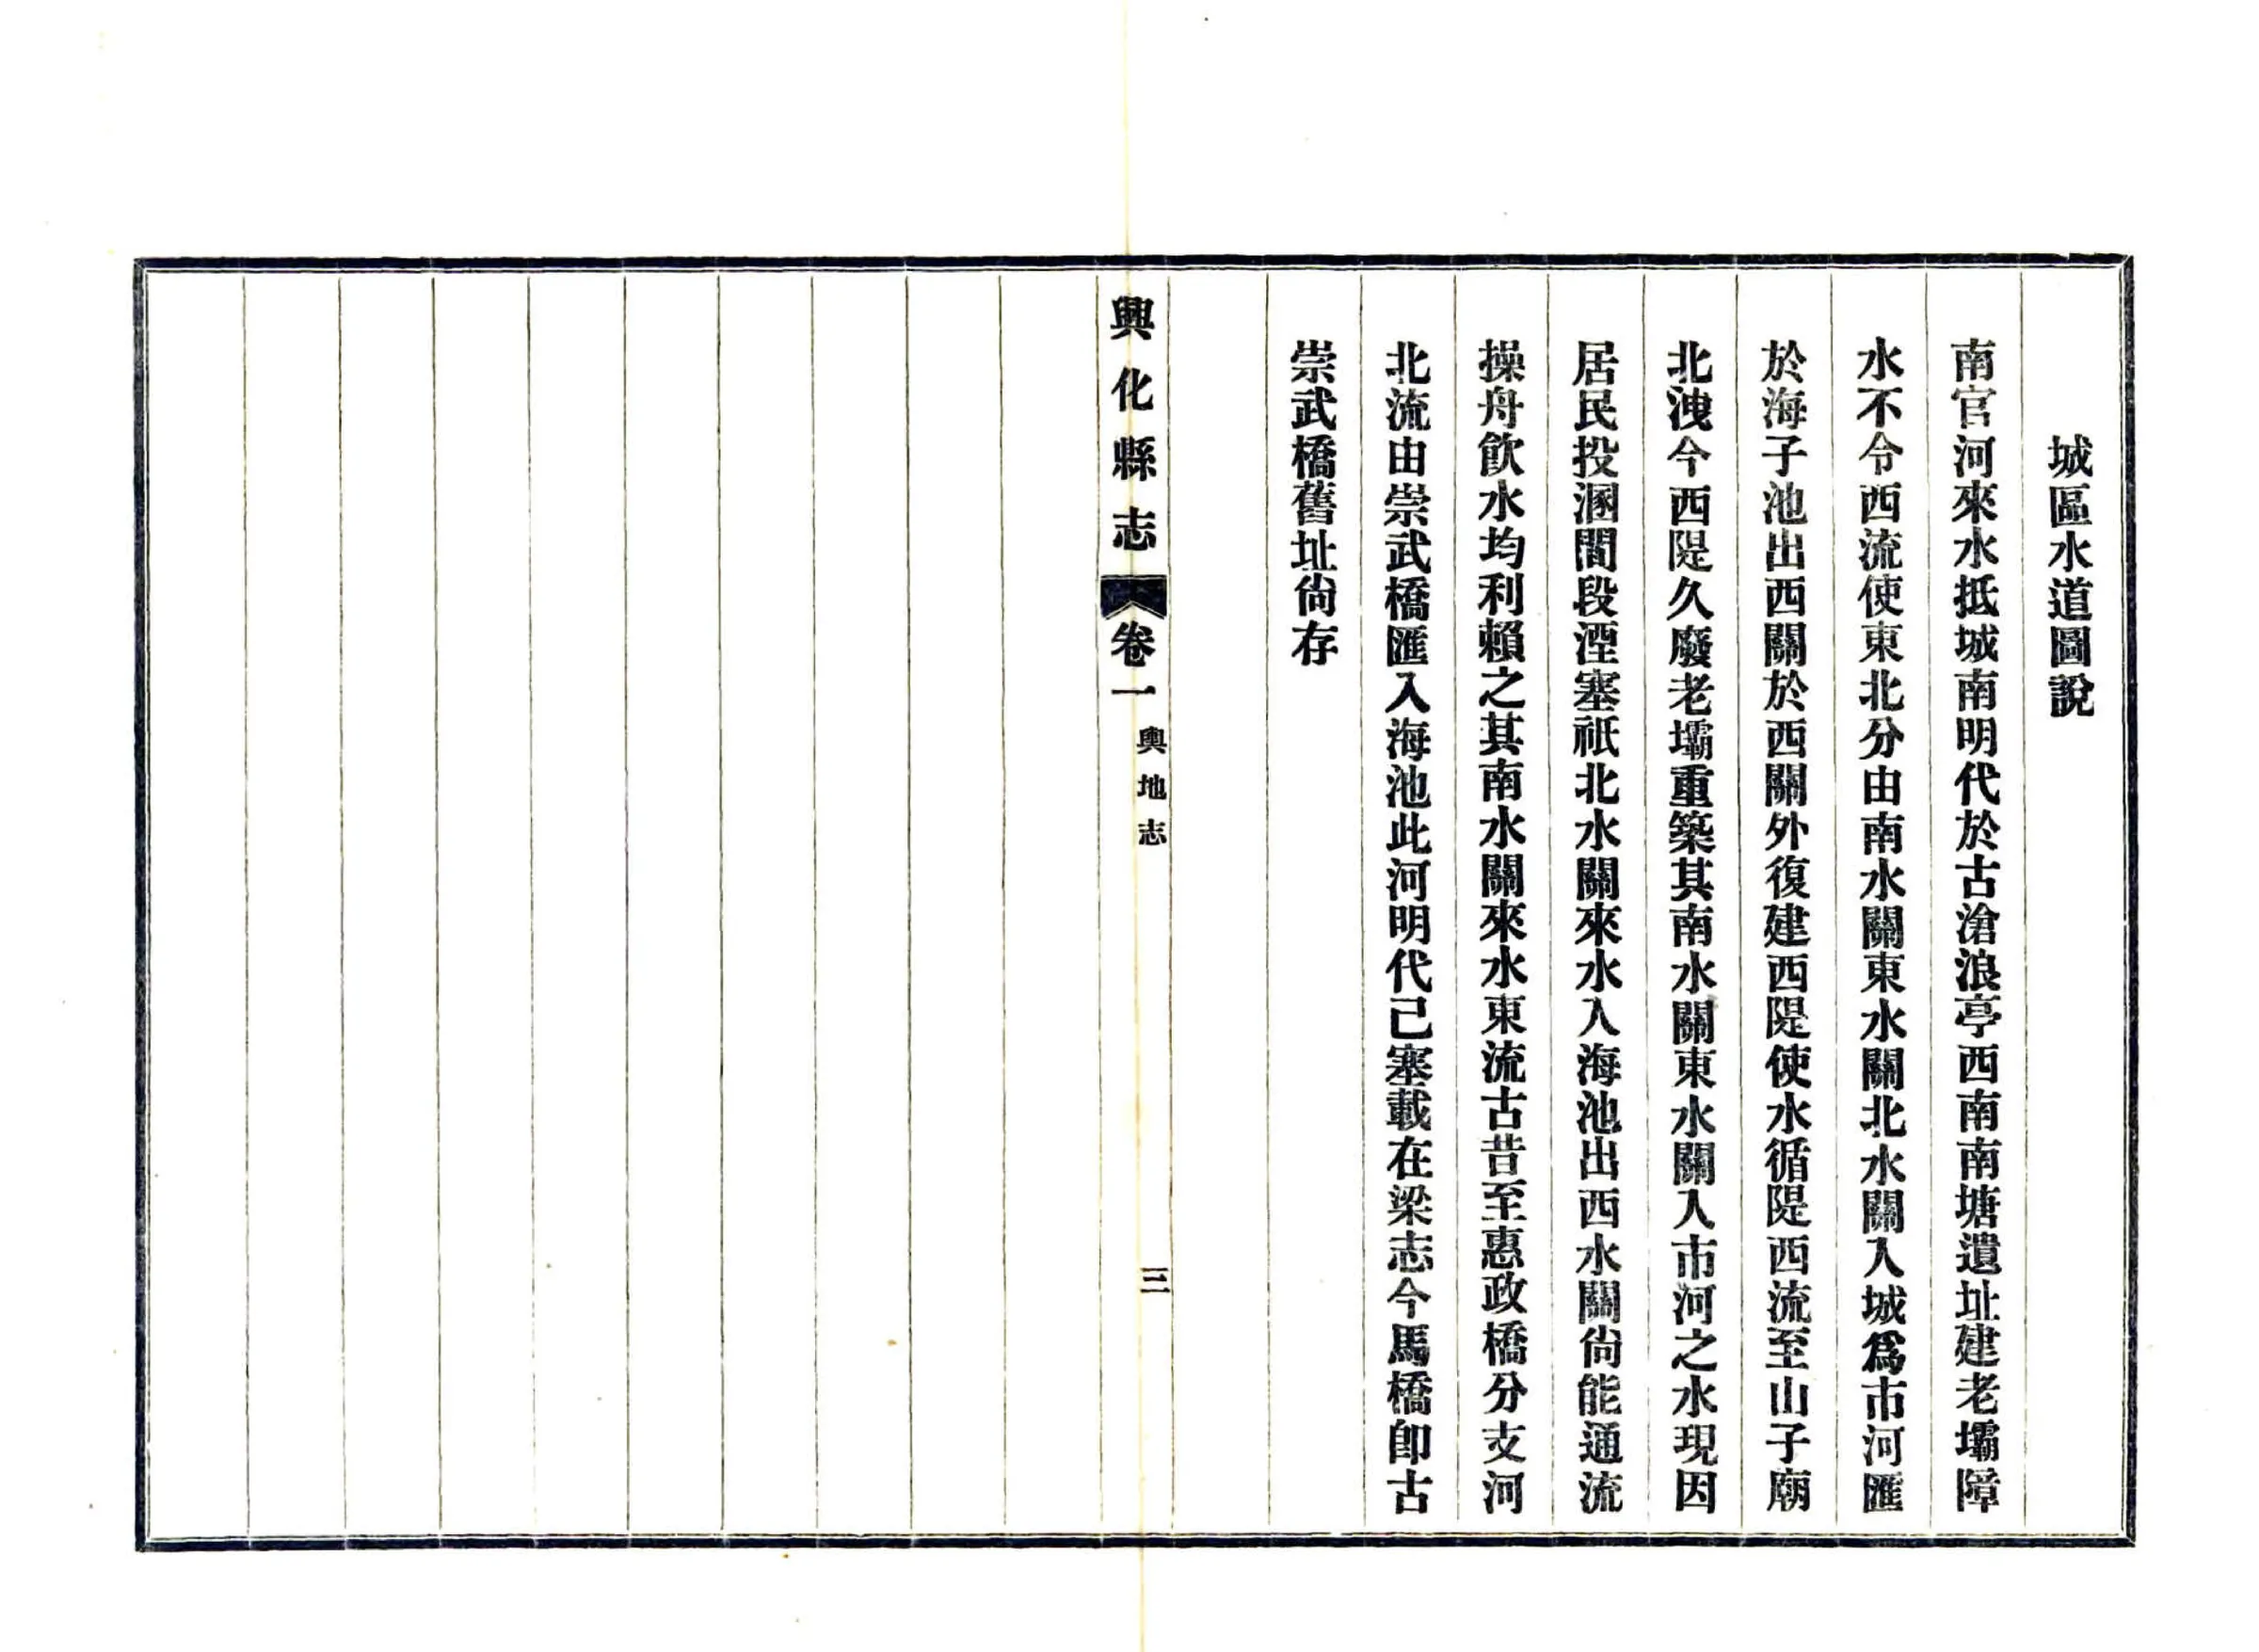 城區水道圖說
南官河來水抵城南明代於古滄浪亭西南南塘遺址建老壩障
水不令西流使東北分由南水關東水關北水關入城爲市河匯
於海子池出西關於西關外復建西隄使水循隄西流至山子廟
北洩今西隄久廢老壩重築其南水關東水關入市河之水現因
居民投溷閒段湮塞祇北水關來水入海池出西水關尙能通流
操舟飮水均利賴之其南水關來水東流古昔至惠政橋分支河
北流由崇武橋匯入海池此河明代己塞載在梁志今馬橋卽古
崇武橋舊址尙存
興化縣志 卷一 輿地志 三